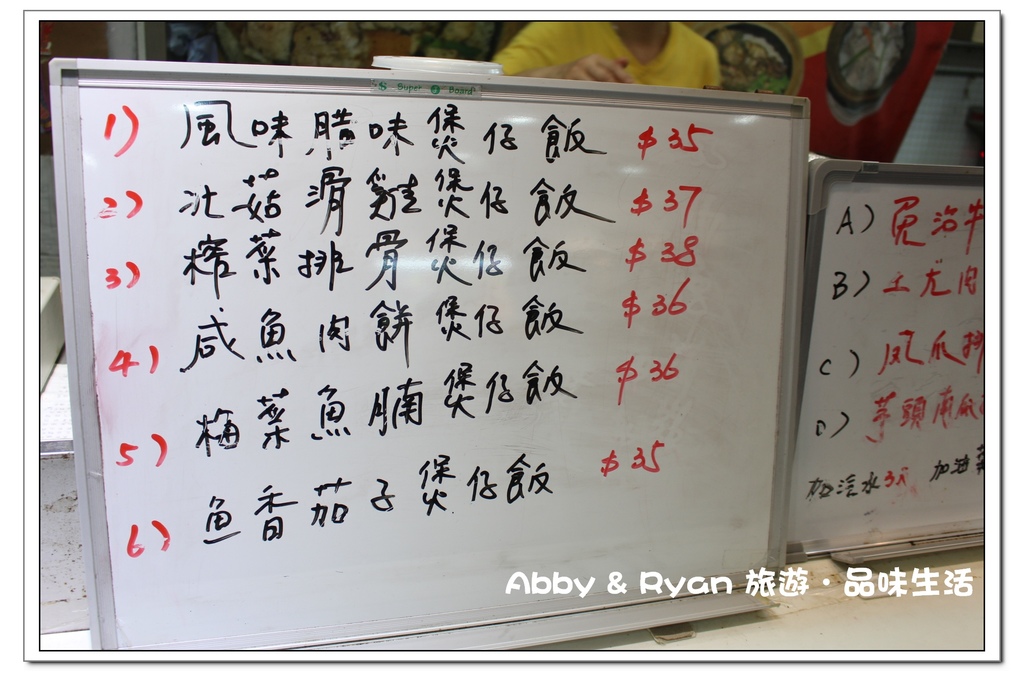 Super Board
1) 風味腊味煲仔飯 $35
2) 北菇滑雞煲仔飯 $37
3) 榨菜排骨煲仔飯 $38
4) 咸魚肉餅煲仔飯 $36
5) 梅菜魚腩煲仔飯 $36
6) 魚香茄子煲仔飯 $35
A) 免治牛
B) 土尤肉
C) 凤爪排
D) 芋頭南瓜
加汽水3元 加油菜
Abby & Ryan 旅遊·品味生活